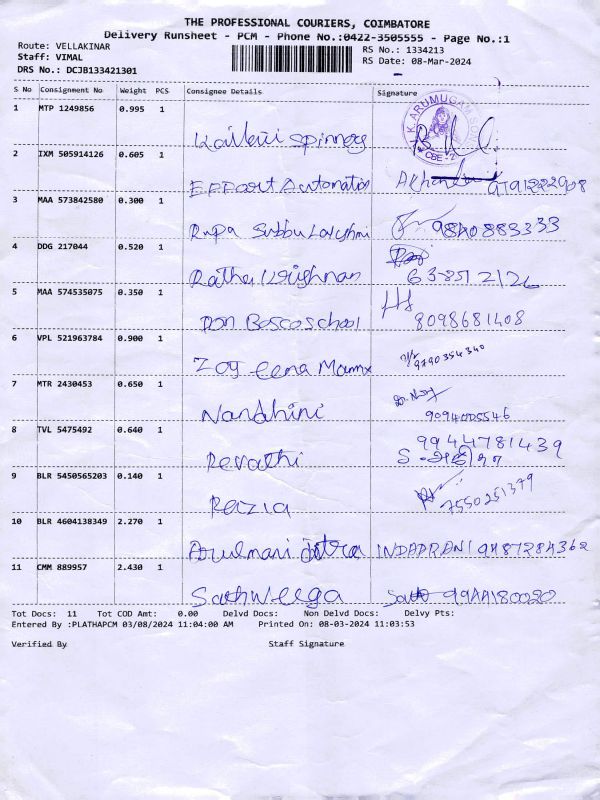 THE PROFESSIONAL COURIERS, COIMBATORE
Delivery Runsheet - PCM - Phone No.:0422-3505555 - Page No.:1
Route: VELLAKINAR RS No.: 1334213
Staff: VIMAL RS Date: 08-Mar-2024
DRS No.: DCJB133421301
S No Consignment No Weight PCS Consignee Details Signature
1 MTP 1249856 0.995 1
K. ARUMUGA
spinners
2 IXM 505914126 0.605 1
Effort Automation
3 MAA 573842580 0.300 1
Rupa Subbu Lakshmi
4 DDG 217044 0.520 1
Ratha Krishnan
5 MAA 574535075 0.350 1
Don Bosco school 8098681408
6 VPL 521963784 0.900 1
9790354340
7 MTR 2430453 0.650 1
Nandhini
8 TVL 5475492 0.640 1
9944781439
Revathi
9 BLR 5450565203 0.140 1
Razia 7550251379
10 BLR 4604138349 2.270 1
Arulmani INDAPRANI 9487284362
11 CMM 889957 2.430 1
Sathweega
Tot Docs: 11 Tot COD Amt: 0.00 Delvd Docs: Non Delvd Docs: Delvy Pts:
Entered By :PLATHAPCM 03/08/2024 11:04:00 AM Printed On: 08-03-2024 11:03:53
Verified By Staff Signature